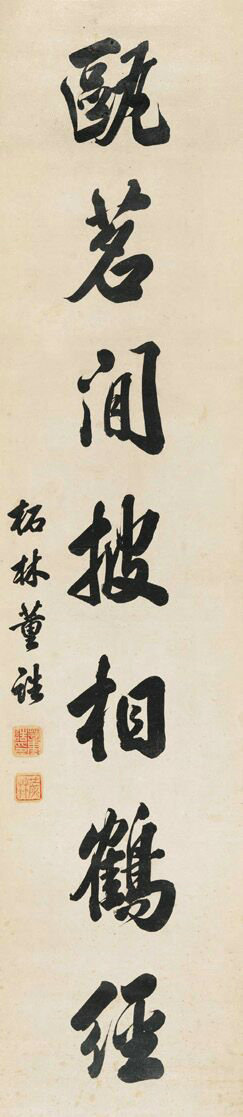 甌茗閒披相鶴經
柘林董誥